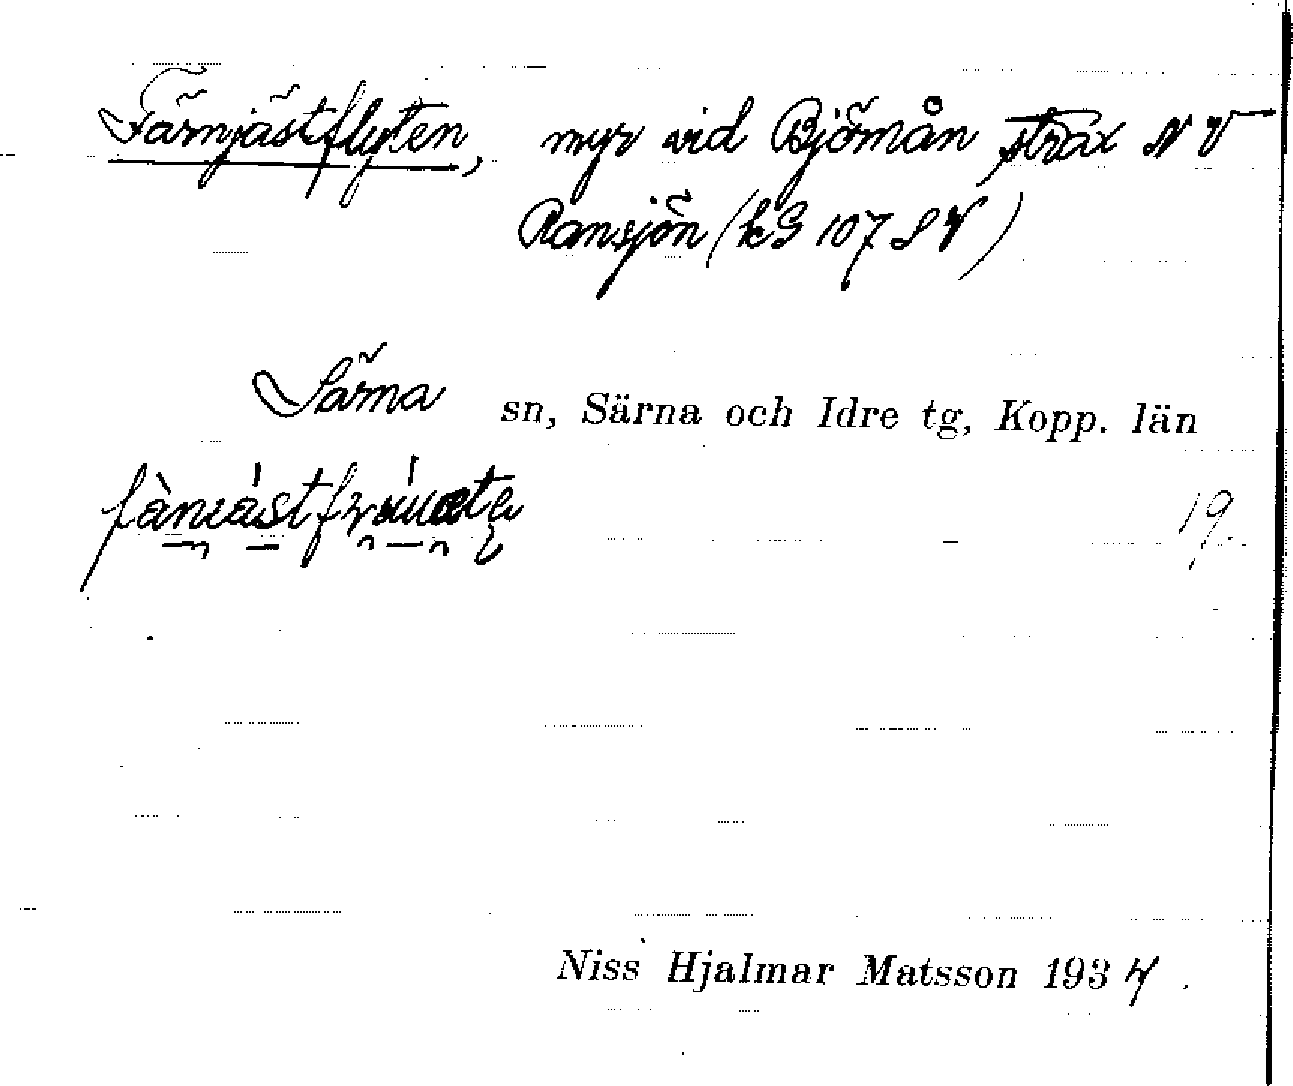 Färnjästflyten, myr vid Björnån strax NV
Ransjön (kG 107 SV)
Särna sn, Särna och Idre tg, Kopp. län
19.
Niss Hjalmar Matsson 1934.